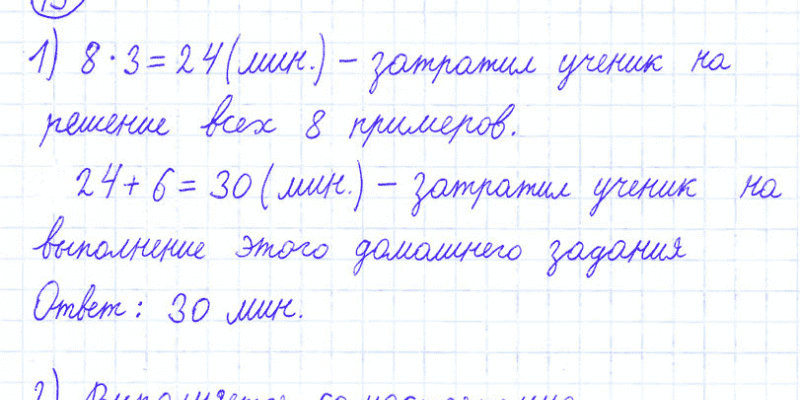 1) 8 · 3 = 24 (мин.) – затратил ученик на
решение всех 8 примеров.
24 + 6 = 30 (мин.) – затратил ученик на
выполнение этого домашнего задания
Ответ: 30 мин.
2) Выполняется самостоятельно